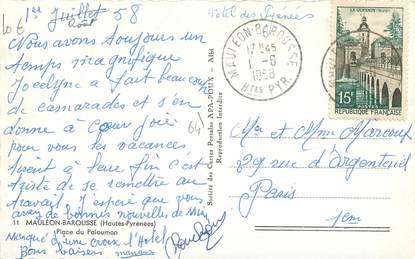 1er Juillet 58
Août
10 €
Hôtel des Pyrénées
Nous avons toujours un
temps magnifique
Jocelyne a fait beaucoup
de camarades et s'en
donne à cœur joie
pour les vacances,
tirent à leur fin c'est
triste de se remettre au
travail. J'espère que vous
avez de bonnes nouvelles de
64
11 MAULÉON-BAROUSSE (Hautes-Pyrénées)
Place du Palouman
Marqué d'une croix l'Hotel
Bons baisers
Société des Cartes Postales APA-POUX - Albi
Reproduction Interdite
MAULÉON-BAROUSSE
17H45
1 -8
1958
HTES PYR.
LE QUESNOY (NORD)
15F
POSTES
Mr et Mme Marcoux
29 rue d'Argenteuil
Paris
1em